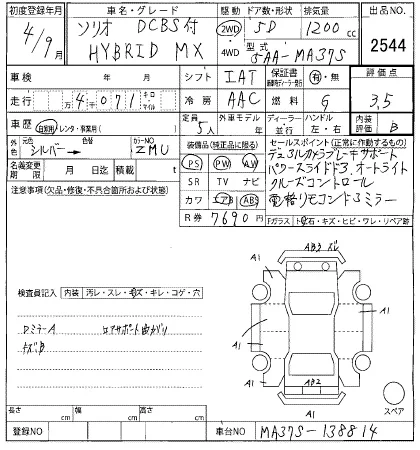 初度登録年月 車名・グレード 駆動 ドア数・形状 排気量 出品NO.
4/9月 ソリオ DCBS付 2WD 5D 1200 cc 2544
HYBRID MX 4WD 型式 5AA-MA37S
車検 年 月 日 シフト IAT 保証書 有・無 評価点
走行 万 4千071 キロ マイル 冷房 AAC 燃料 G 3.5
車歴 自家用・レンタ・事業用( ) 定員 5人 外車モデル 年 ディーラー 並行 ハンドル 左・右 内装評価 B
外色 元色 シルバー → 色 カラーNO ZMU 装備品(純正品に限る) セールスポイント(正常に作動するもの)
名義変更期限 月 日迄 積載 t PS PW AW デュアルカメラブレーキサポート
注意事項(欠品・修復・不具合箇所および状態) SR TV ナビ パワースライドドア.オートライト
カワ エアB ABS クルーズコントロール
R券 7690円 電格リモコンドアミラー
Fガラス トビ石・キズ・ヒビ・ワレ・リペア跡
検査員記入 内装 汚レ・スレ・キズ・キレ・コゲ・穴
DミラーA コアサポート曲がり
ケズB
AB3
A1
A1
A1
A1
A1
AB2
A1
スペア
長さ cm 幅 cm 高さ cm
登録NO 車台NO MA37S-138814